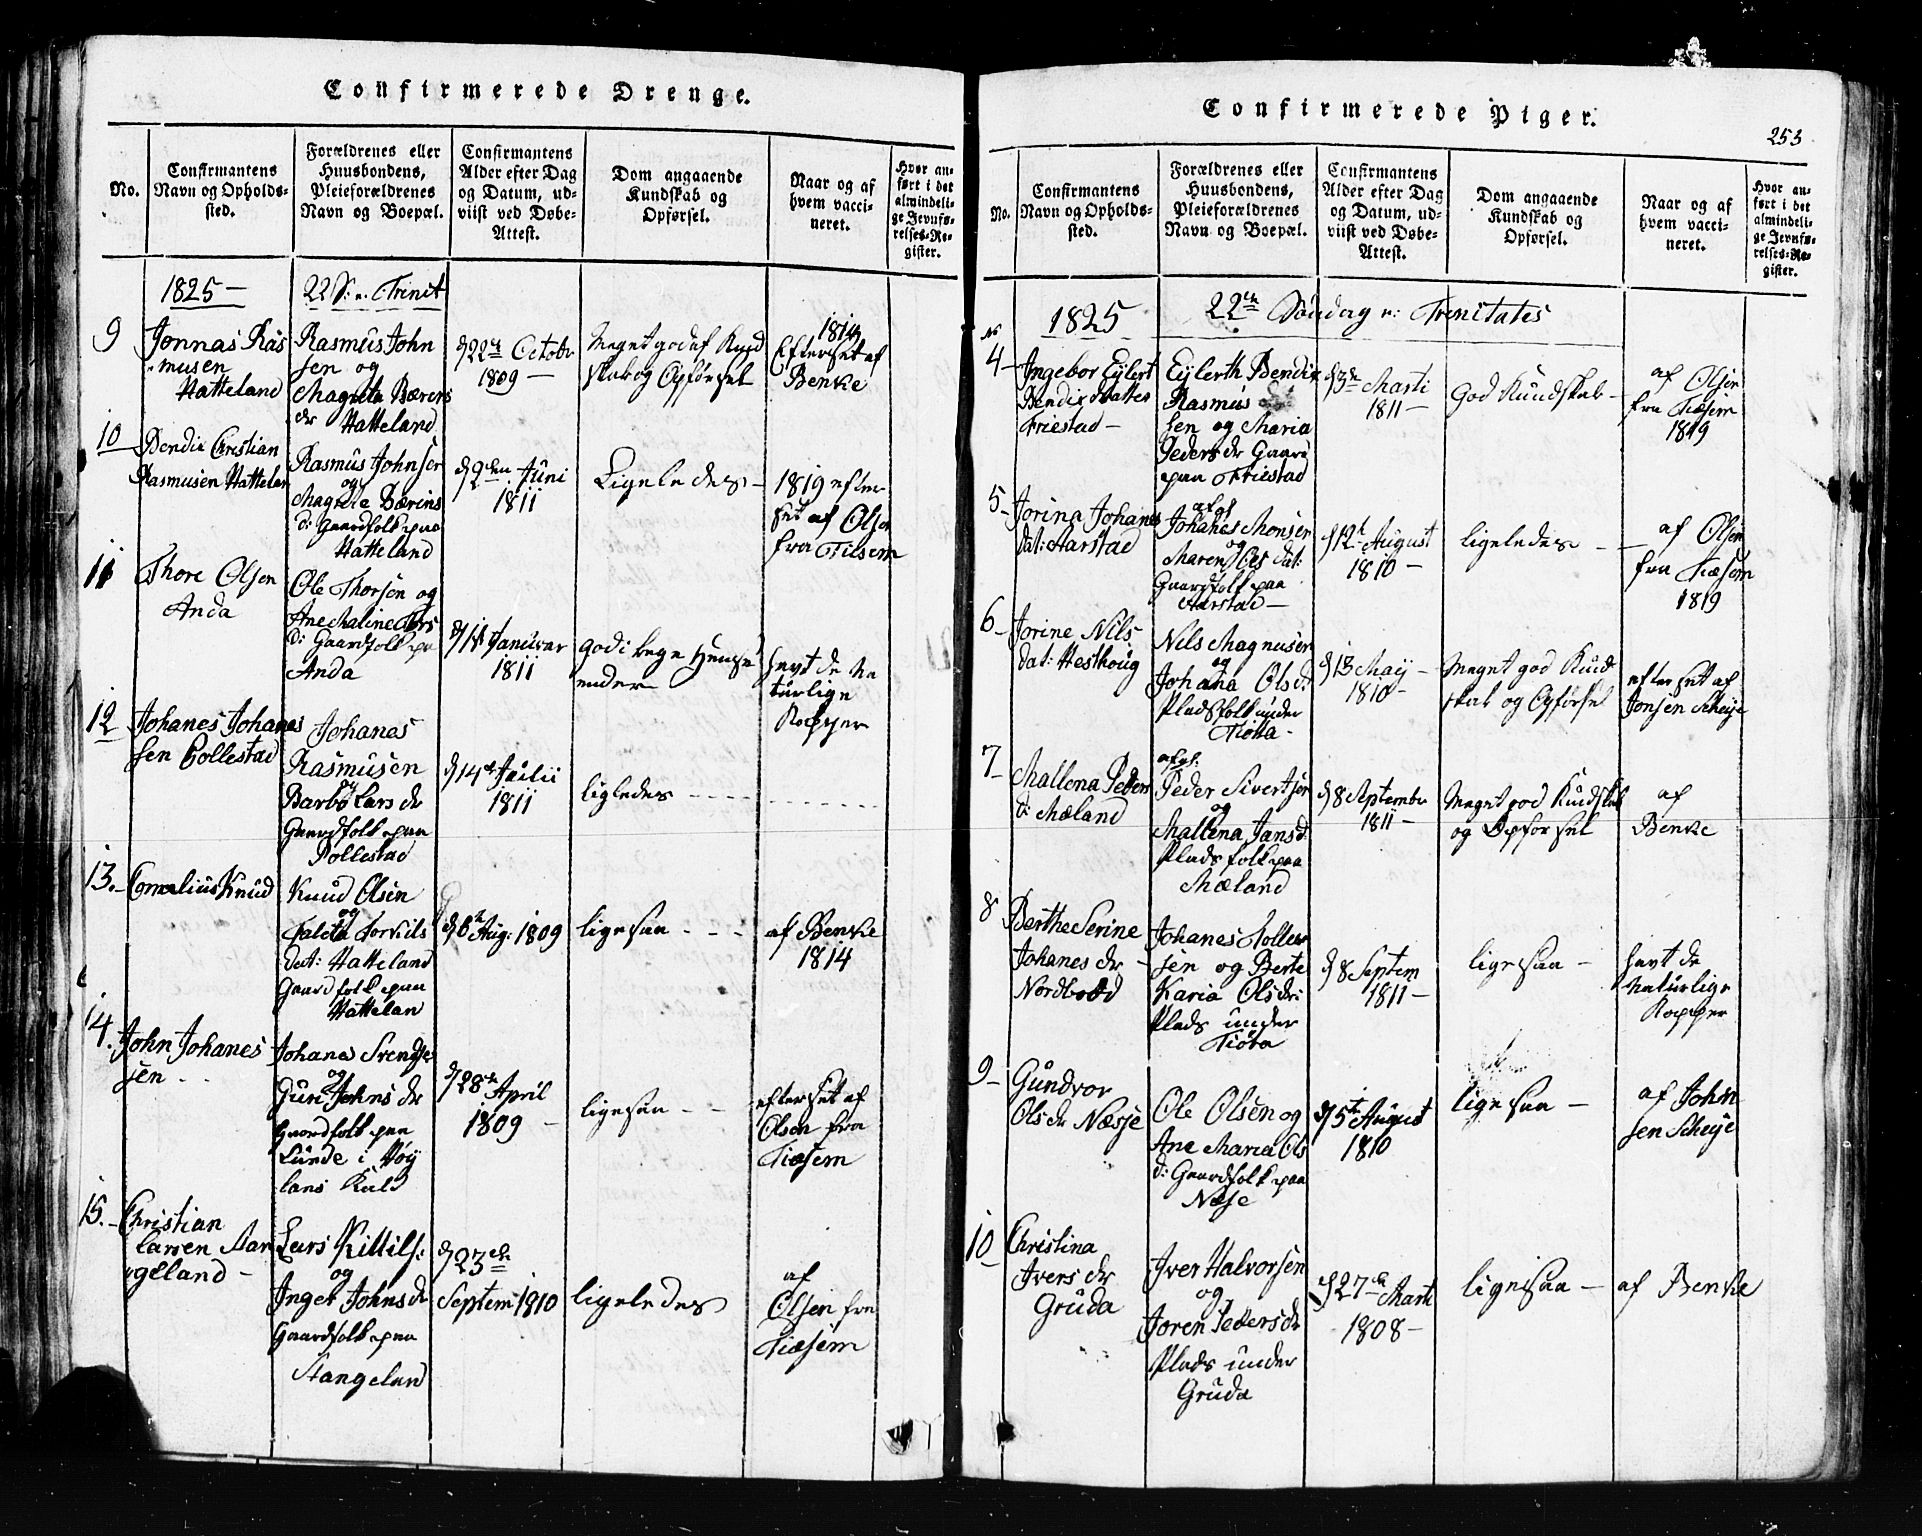 Confirmerede Drenge.
No.
Confirmantens
Navn og Opholds-
sted.
Forældrenes eller
Huusbondens,
Pleieforældrenes
Navn og Boepæl.
Confirmantens
Alder efter Dag
og Datum, ud-
viist ved Døbe-
Attest.
Dom angaaende
Kundskab og
Opførsel.
Naar og af
hvem vacci-
neret.
Hvor an-
ført i det
almindeli-
ge Jevnfø-
relses-Re-
gister.
1825 -
22 S: n. Trinit
9
Jonnas Ras
musen
Hatteland
Rasmus John
sen og
Magreta Bærens
dr Hatteland
d 22de Octobr
1809 -
Meget godt Kund
skab og Opførsel
1814
Efterset af
Benke
10
Bendix Christian
Rasmusen Hattelan
Rasmus Johnsen
og
Magrete Bærins
d: Gaardfolk paa
Hatteland
d 2den Juni
1811
Ligeledes -
1819 efter
set af Olsen
fra Tiesem
11
Thore Olsen
Anda
Ole Thorsen og
Ane Maline Tors
d: Gaardfolk pa
Anda
d 11te Januar
1811
god i bege Hense
ender
havt de na
turlige
Kopper
12
Johanes Johanes
sen Pollestad
Johanas
Rasmusen
og
Barbo Lars dr
Gaardfolk paa
Pollestad
d 14de Julii
1811
ligledes - - - -
13. -
Cornelius Knud
Knud Olsen
og
Taleta Torkils
dat: Hatteland
Gaardfolk paa
Hattelan
d 6te Aug: 1809
ligesaa - - -
af Benke
1814
14.
John Johanes
sen - -
Johanes Svendse
og
Guri Johns dr
Gaardfolk paa
Lunde i Høy
lans Kald
d 28de April
1809 -
ligesaa - -
efterset af
Olsen fra
Tiæsem
15. -
Christian
Larsen Stan
geland -
Lars Kittils:
og
Inger Johns dr
Gaardfolk paa
Stangeland
d 23de
Septem 1810
ligeledes
af
Olsen fra
Tiæsem
Confirmerede Piger.
253
No.
Confirmantens
Navn og Opholds-
sted.
Forældrenes eller
Huusbondens,
Pleieforældrenes
Navn og Boepæl.
Confirmantens
Alder efter Dag
og Datum, ud-
viist ved Døbe-
Attest.
Dom angaaende
Kundskab og
Opførsel.
Naar og af
hvem vacci-
neret.
Hvor an-
ført i det
almindeli-
ge Jevnfø-
relses-Re-
gister.
No
1825
22de Søndag n: Trinitates
4 -
Ingebor Eylert
Bendix Dattes
Friestad -
Eylerth Bendix
Rasmus
sen og Maria
Peders dr Gaard
paa Friestad
d 3de Marti
1811 -
God Kundskab -
af Olsen
fra Tiæsem
1819
5 -
Jorina Johanes
dat: Aarstad
afgl
Johanes Monsen
og
Maren Ols dat:
Gaardfolk paa
Aarstad -
d 12te August
1810 -
ligeledes - -
af Olsen
fra Tiæsem
1819
6 -
Jorine Nils
dat: Hesthoug
Nils Magnusen
og
Johana Ols d:
Pladsfolk under
Tiøtta -
d 13 Maij -
1810 -
Meget god Kund
skab og Opførsel
efterset af
Jonsen Scheije
7 -
Mallena Peders
d: Mæland
afgl:
Peder Sivertsen
og
Mallena Jans d:
Pladsfolk paa
Mæland
d 8 Septembr
1811 -
Meget god Kundskab
og Opforsel
af
Benke
8
Berthe Serine
Johanes dr -
Nordbrød
Johanes Tollev
sen og Berte
Karia Ols dr:
Plads under
Tiøta
d 8 Septem
1811 -
ligesaa -
havt de
naturlige
Kopper
9 -
Gundvor
Ols dr Næsje
Ole Olsen og
Ane Maria Ols
d: Gaardfolk paa
Næse
d 5te August
1810
ligesaa -
af John
sen Scheije
10
Christina
Ivers dr
Gruda
Iver Halvorsen
og
Joren Peders dr
Plads under
Gruda
d 27de Marti
1808 -
ligesaa -
af Benke